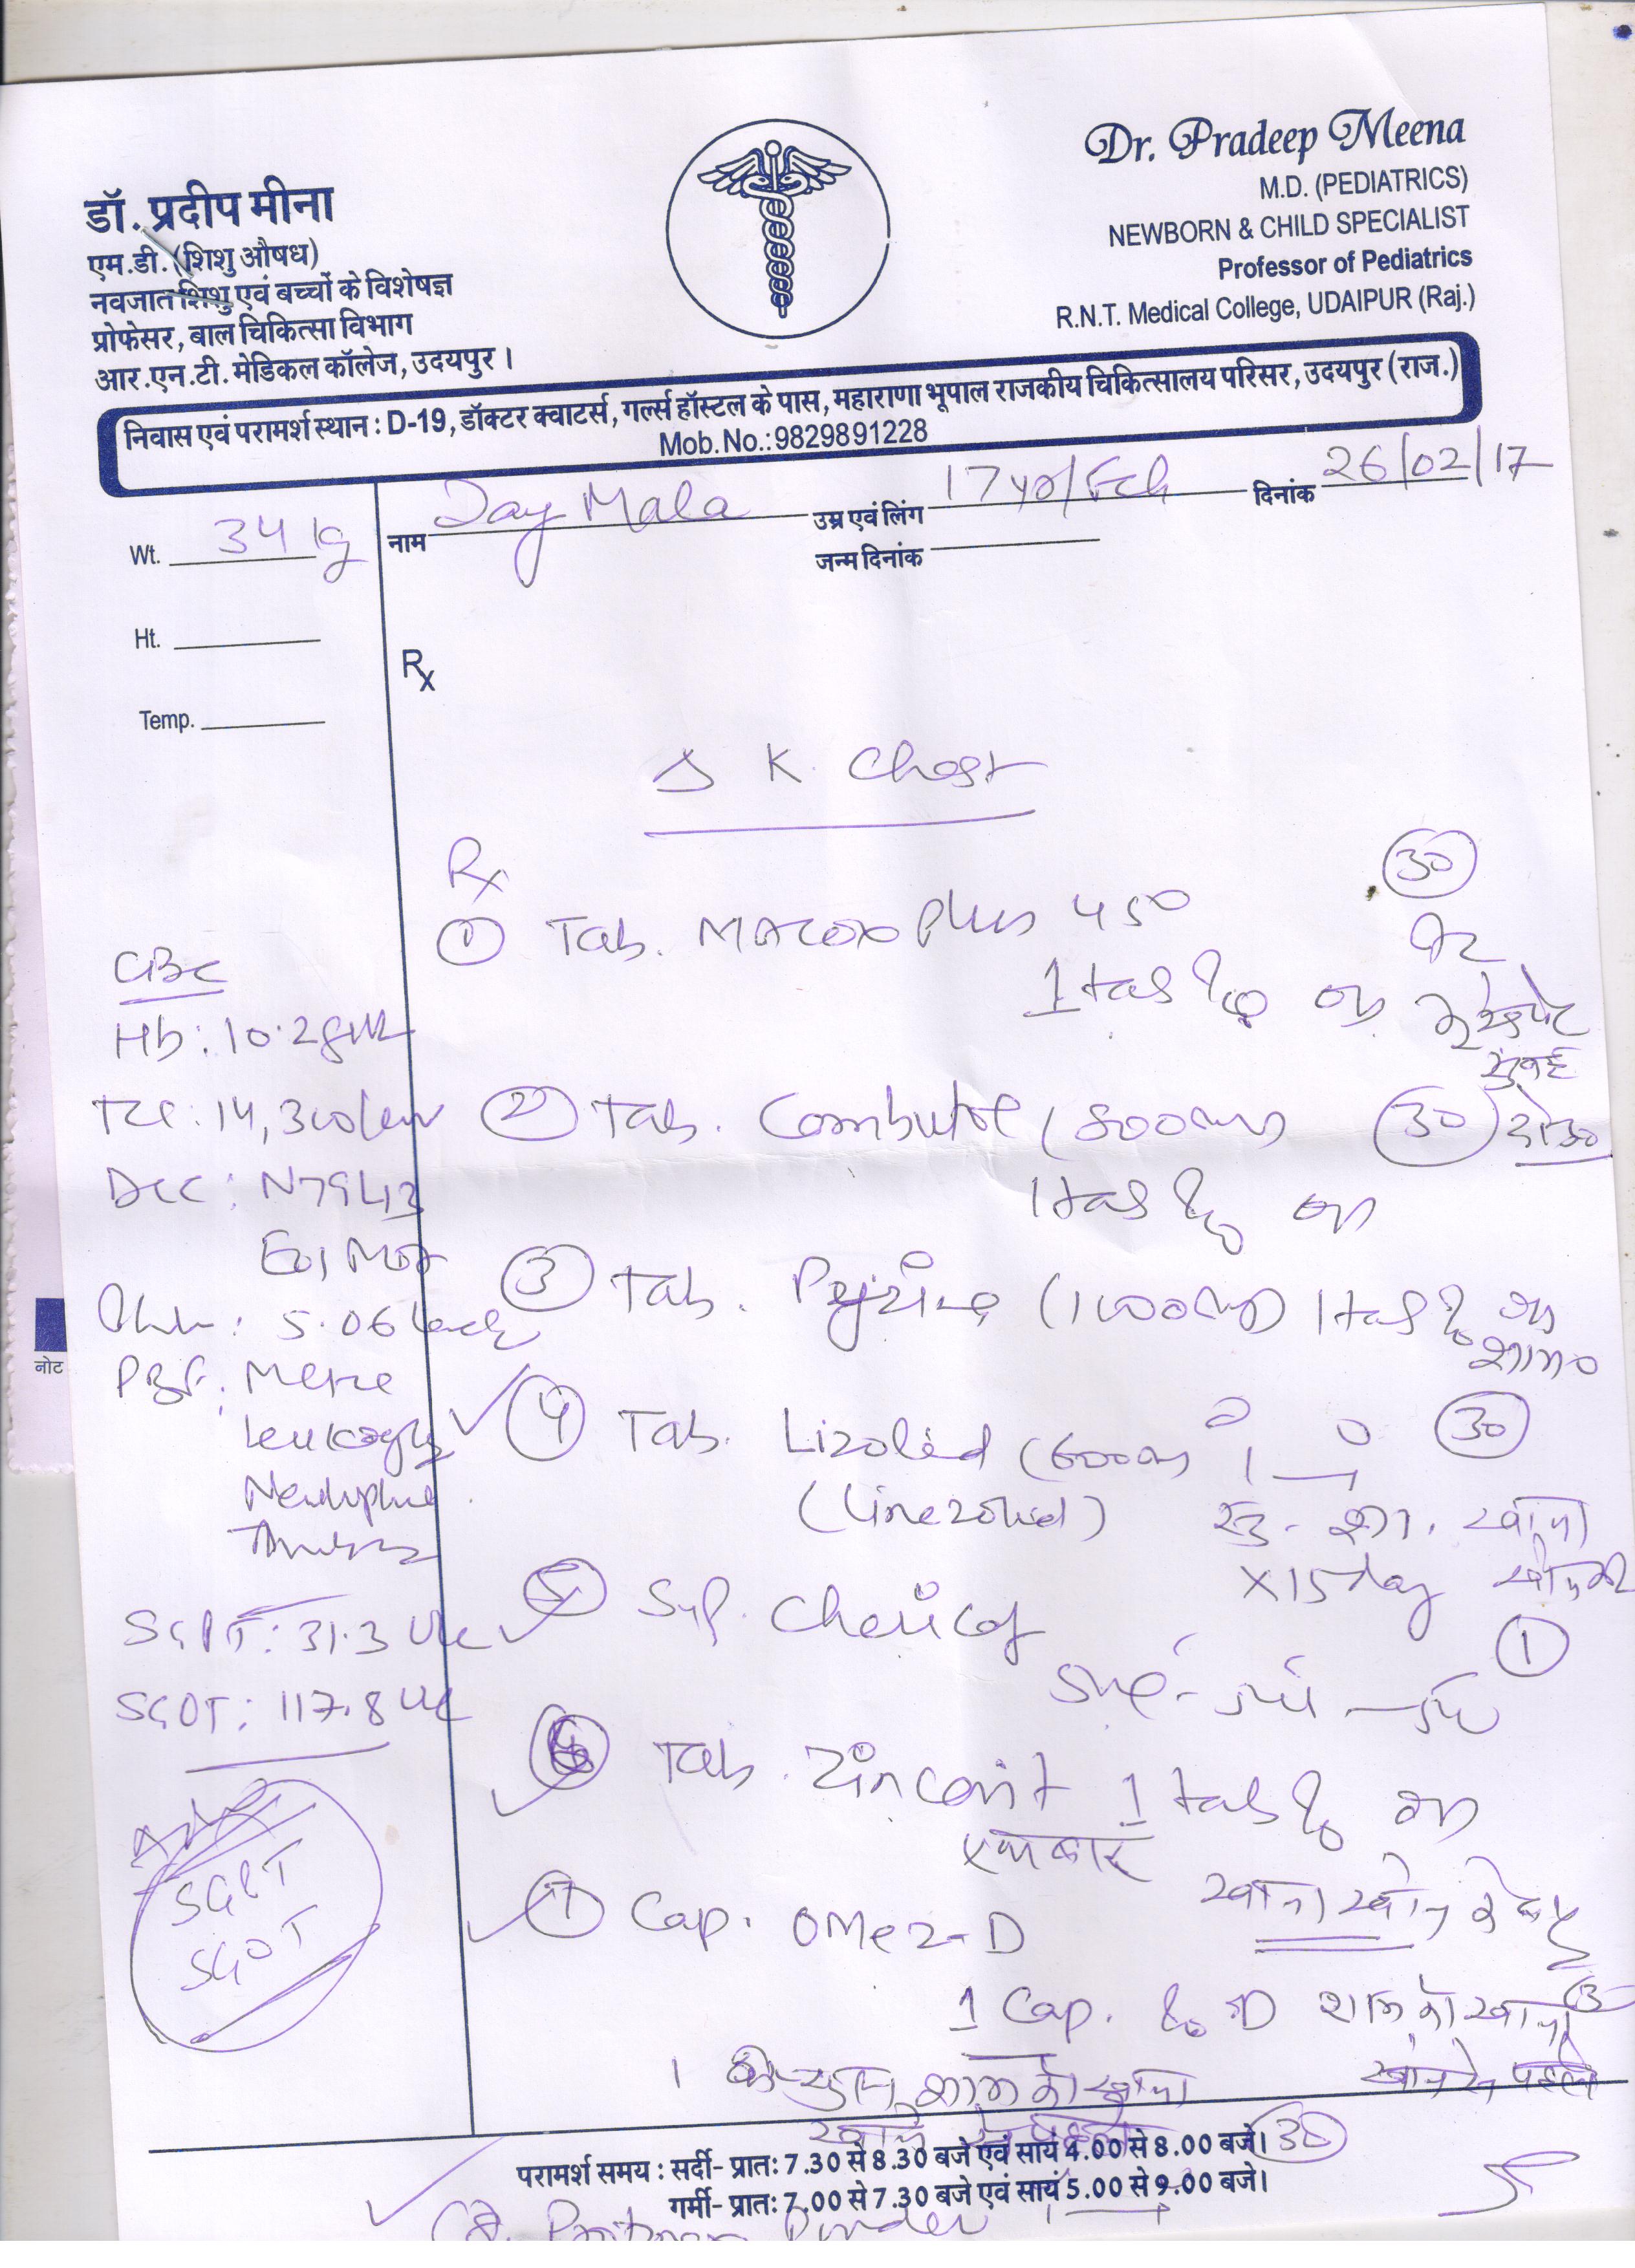 Dr. Pradeep Meena
M.D. (PEDIATRICS)
NEWBORN & CHILD SPECIALIST
Professor of Pediatrics
R.N.T. Medical College, UDAIPUR (Raj.)
डॉ. प्रदीप मीना
एम.डी. (शिशु औषध)
नवजात शिशु एवं बच्चों के विशेषज्ञ
प्रोफेसर, बाल चिकित्सा विभाग
आर.एन.टी. मेडिकल कॉलेज, उदयपुर ।
निवास एवं परामर्श स्थान : D-19, डॉक्टर क्वाटर्स, गर्ल्स हॉस्टल के पास, महाराणा भूपाल राजकीय चिकित्सालय परिसर, उदयपुर (राज.)
Mob. No.: 9829891228
नाम Jay Mala उम्र एवं लिंग 17 yr/Fch दिनांक 26/02/17
जन्म दिनांक
Wt. 34 kg
Ht.
Temp.
Rx
K. Chest
Rx
① Tab. Macox Plus 450 (30)
1 tab
सुबह
② Tab. Combutol (800mg) (30) रोज
1 tab
③ Tab. Pyzina (1000mg) 1 tab
शाम
④ Tab. Lizolid (600mg) 1 — 1 (30)
(Linezolid) सु - शा. खाना
x 15 day
⑤ Syp. Chericof (1)
5ml - 5ml - 5ml
Tab. Zinconit 1 tab
एक बार
खाना खाने के बाद
⑦ Cap. Omez-D
1 Cap. शाम को खाना
खाने से पहले
1 कैप्सूल शाम को खाना
खाने से पहले (30)
CBC
Hb: 10.2 gm%
TLC: 14,300/
DLC: N79 L13
E01 M07
5.06 lack
PBF:
SGPT: 31.3 U/L
SGOT: 117.8 U/L
SGPT
SGOT
नोट
परामर्श समय : सर्दी- प्रातः 7.30 से 8.30 बजे एवं सायं 4.00 से 8.00 बजे।
गर्मी- प्रातः 7.00 से 7.30 बजे एवं सायं 5.00 से 9.00 बजे।
Powder 1 — 1